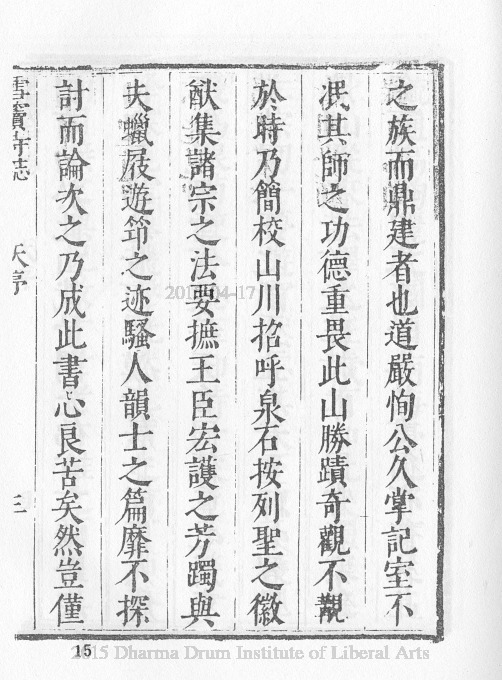 之族而鼎建者也道嚴恂公久掌記室不
泯其師之功德重畏此山勝蹟奇觀不覯
於時乃簡校山川招呼泉石按列聖之徽
猷集諸宗之法要摭王臣宏護之芳躅與
夫蠟屐遊筇之迹騷人韻士之篇靡不探
討而論次之乃成此書心良苦矣然豈僅
雪竇寺志 序 三
15
2015-04-17
2015 Dharma Drum Institute of Liberal Arts